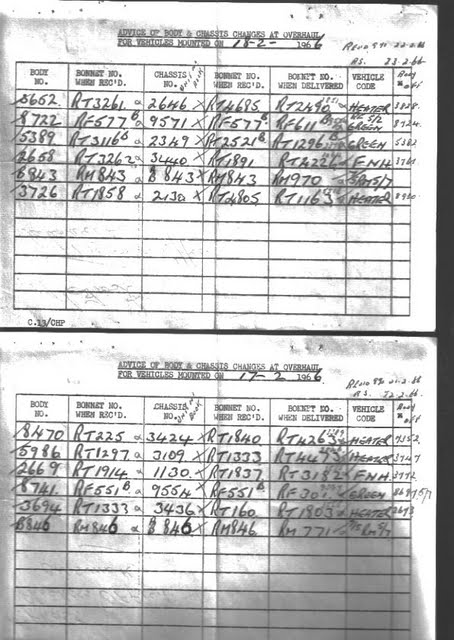 ADVICE OF BODY & CHASSIS CHANGES AT OVERHAUL
FOR VEHICLES MOUNTED ON 18-2- 1966
22-2-66
23.2.66
BODY NO. BONNET NO. WHEN REC'D. CHASSIS NO. BONNET NO. WHEN REC'D. BONNET NO. WHEN DELIVERED VEHICLE CODE Body off
5652 RT3261 a 2646 X RT4685 RT2490 HEATER
8722 RF577 B a 9571 X RF577 B RF611 GREEN 8724
5389 RT3116 B a 2349 X RT2521 B RT1296 GREEN 5382
2658 RT3262 a 3440 X RT1891 RT2226 FNH
B843 RM843 a B 843 X RM843 RM970 RM5/7
3726 RT1858 a 2130 X RT4805 RT1163 HEATER
C.13/CHP
ADVICE OF BODY & CHASSIS CHANGES AT OVERHAUL
FOR VEHICLES MOUNTED ON 17-2 1966
BODY NO. BONNET NO. WHEN REC'D. CHASSIS NO. BONNET NO. WHEN REC'D. BONNET NO. WHEN DELIVERED VEHICLE CODE Body off
8470 RT225 a 3424 X RT1840 RT4263 HEATER 7352
5986 RT1297 a 3109 X RT1333 RT4473 HEATER 3747
2669 RT1914 a 1130 X RT1937 RT3182 FNH
8741 RF551 B a 9554 X RF551 B RF301 GREEN
3694 RT1333 a 3436 X RT160 RT1803 HEATER 2693
B846 RM846 a B 846 X RM846 RM771 RM5/7